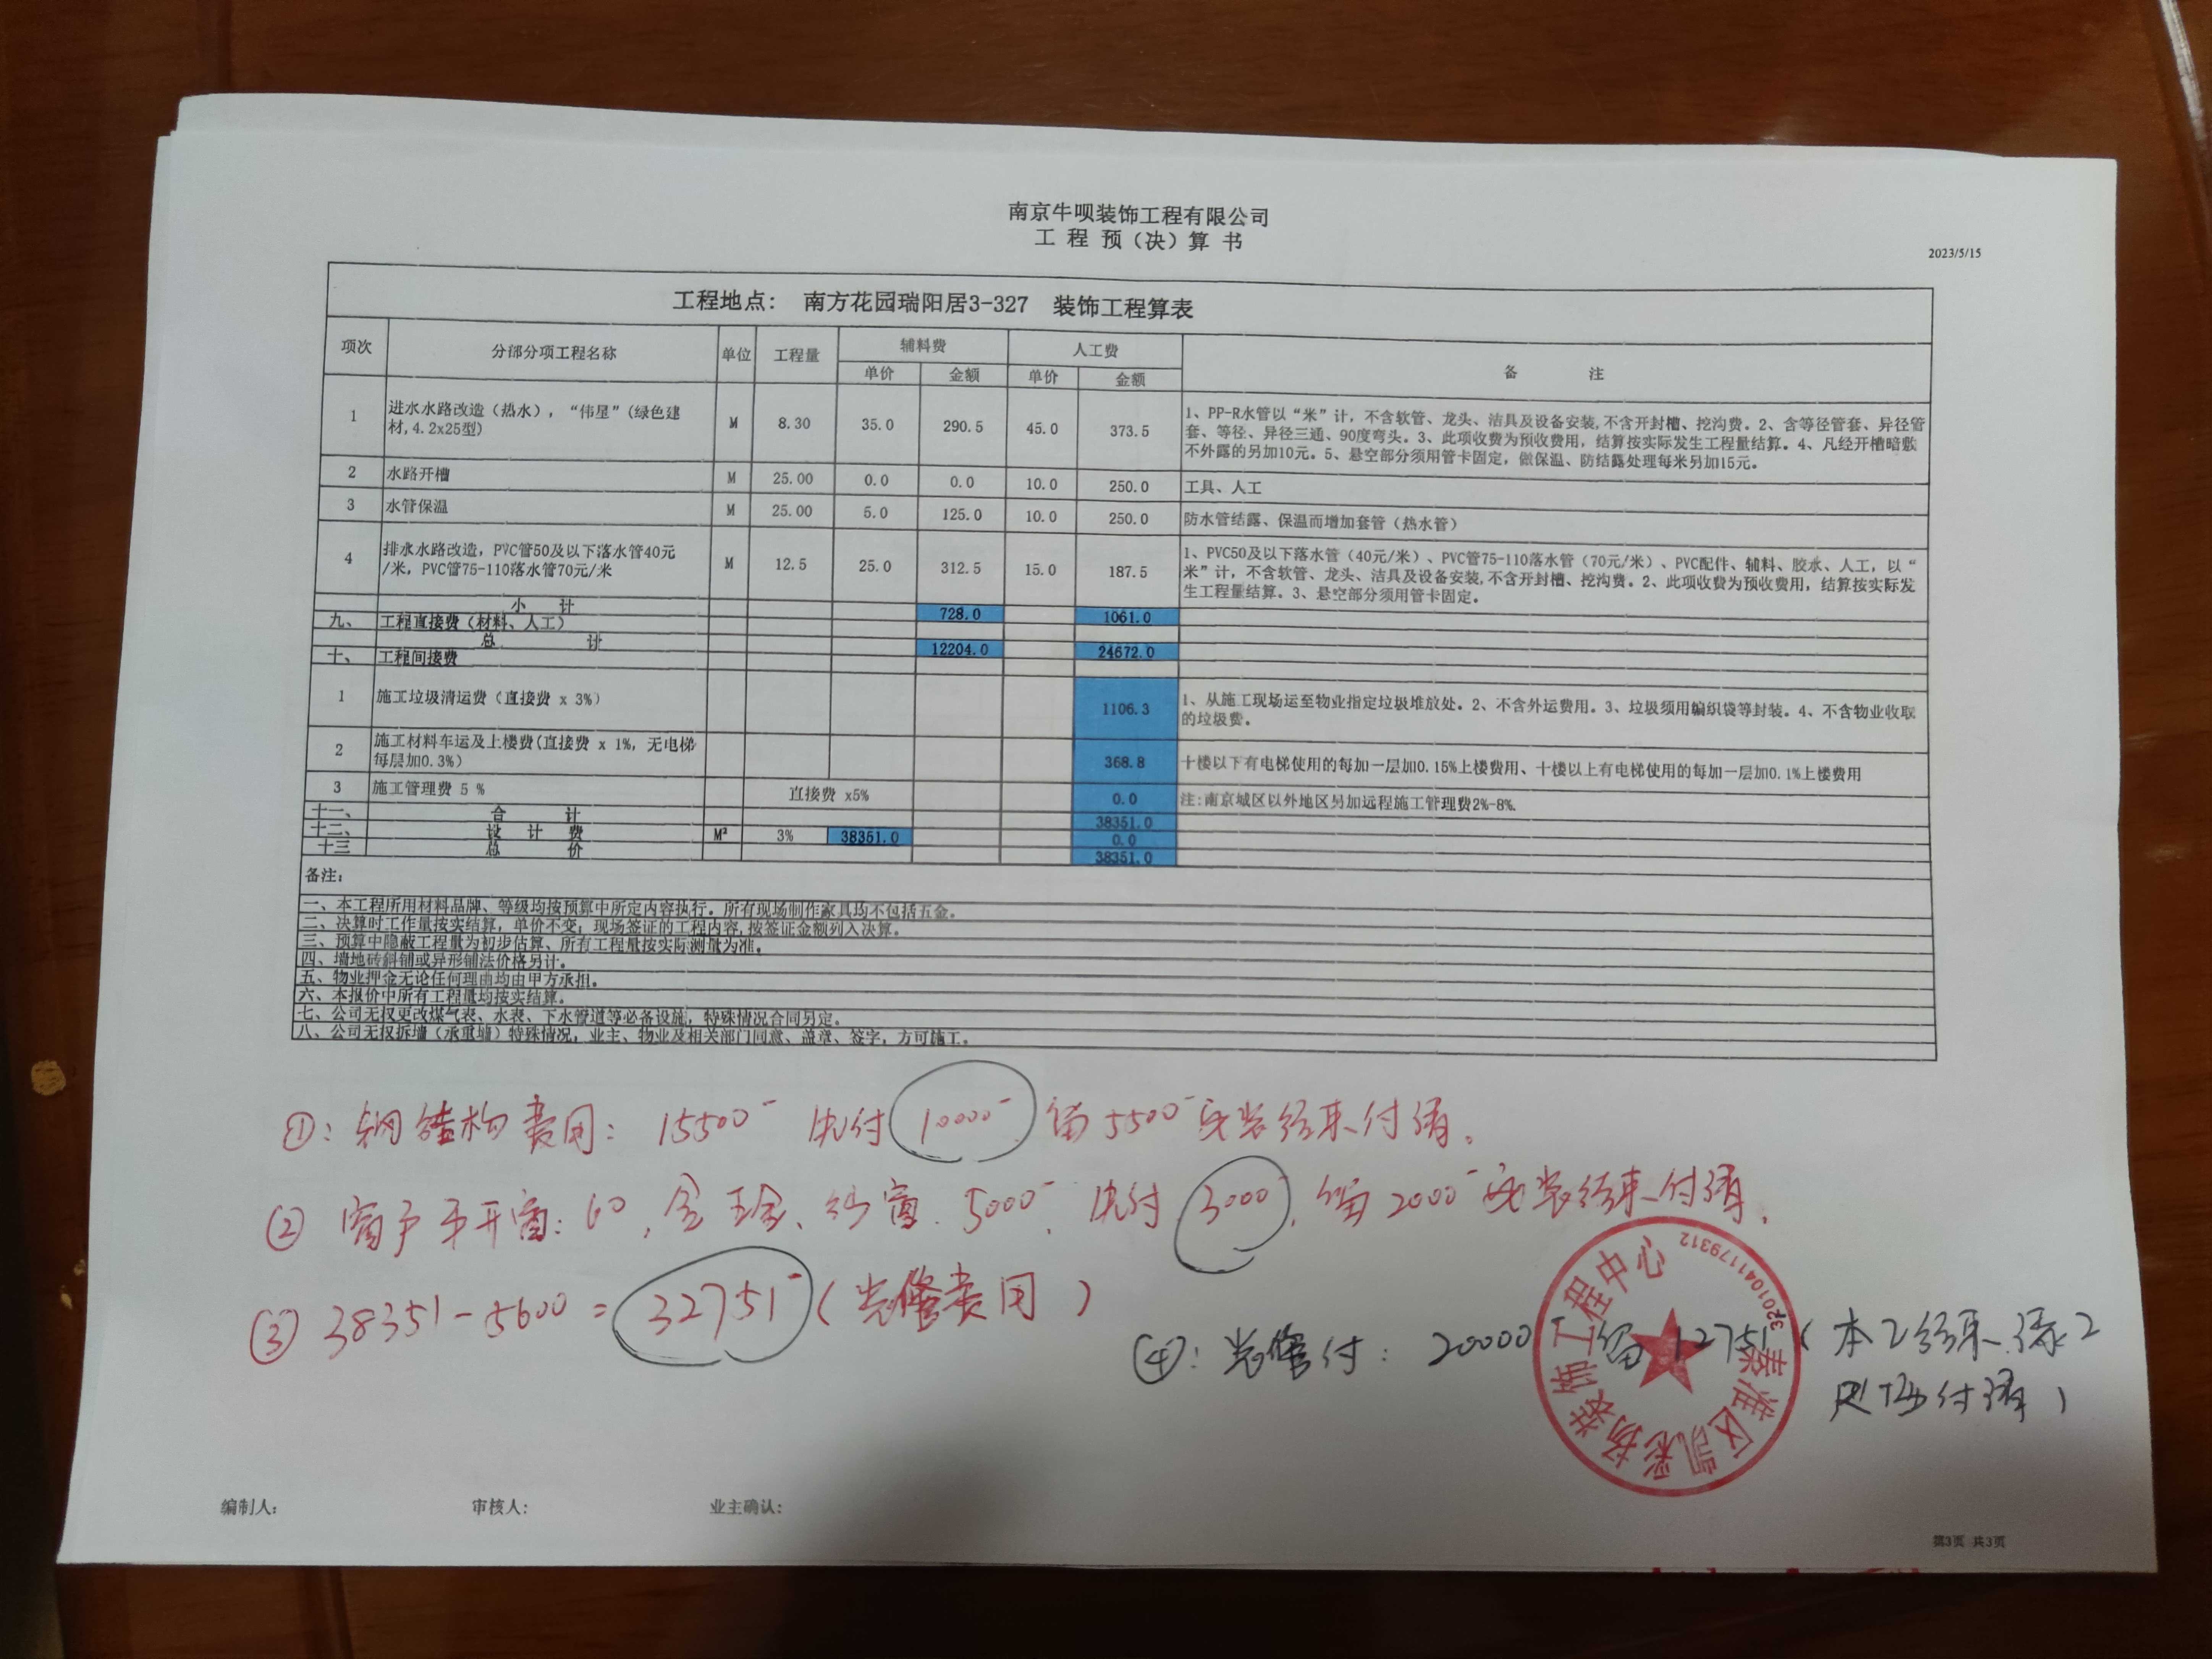 南京牛呗装饰工程有限公司
工 程 预（决）算 书
2023/5/15
工程地点： 南方花园瑞阳居3-327 装饰工程算表
项次 分部分项工程名称 单位 工程量 辅料费 人工费 备 注
单价 金额 单价 金额
1 进水水路改造（热水），“伟星”(绿色建材,4.2x25型) M 8.30 35.0 290.5 45.0 373.5
1、PP-R水管以“米”计，不含软管、龙头、洁具及设备安装,不含开封槽、挖沟费。2、含等径管套、异径管
套、等径、异径三通、90度弯头。3、此项收费为预收费用，结算按实际发生工程量结算。4、凡经开槽暗敷
不外露的另加10元。5、悬空部分须用管卡固定，做保温、防结露处理每米另加15元。
2 水路开槽 M 25.00 0.0 0.0 10.0 250.0 工具、人工
3 水管保温 M 25.00 5.0 125.0 10.0 250.0 防水管结露、保温而增加套管（热水管）
4 排水水路改造，PVC管50及以下落水管40元
/米，PVC管75-110落水管70元/米 M 12.5 25.0 312.5 15.0 187.5
1、PVC50及以下落水管（40元/米）、PVC管75-110落水管（70元/米）、PVC配件、辅料、胶水、人工，以“
米”计，不含软管、龙头、洁具及设备安装,不含开封槽、挖沟费。2、此项收费为预收费用，结算按实际发
生工程量结算。3、悬空部分须用管卡固定。
小 计 728.0 1061.0
九、 工程直接费（材料、人工）
总 计 12204.0 24672.0
十、 工程间接费
1 施工垃圾清运费（直接费 x 3%） 1106.3
1、从施工现场运至物业指定垃圾堆放处。2、不含外运费用。3、垃圾须用编织袋等封装。4、不含物业收取
的垃圾费。
2 施工材料车运及上楼费(直接费 x 1%，无电梯
每层加0.3%） 368.8 十楼以下有电梯使用的每加一层加0.15%上楼费用、十楼以上有电梯使用的每加一层加0.1%上楼费用
3 施工管理费 5 % 直接费 x5% 0.0 注:南京城区以外地区另加远程施工管理费2%-8%.
十一、 合 计 38351.0
十二、 设 计 费 M² 3% 38351.0 0.0
十三 总 价 38351.0
备注：
一、本工程所用材料品牌、等级均按预算中所定内容执行。所有现场制作家具均不包括五金。
二、决算时工作量按实结算，单价不变；现场签证的工程内容,按签证金额列入决算。
三、预算中隐蔽工程量为初步估算、所有工程量按实际测量为准。
四、墙地砖斜铺或异形铺法价格另计。
五、物业押金无论任何理由均由甲方承担。
六、本报价中所有工程量均按实结算。
七、公司无权更改煤气表、水表、下水管道等必备设施，特殊情况合同另定。
八、公司无权拆墙（承重墙）特殊情况，业主、物业及相关部门同意、盖章、签字，方可施工。
①：钢结构费用：15500- 先付 10000- 留5500-安装结束付清。
② 窗户平开窗：60，含五金、纱窗．5000-，先付 3000，留2000-安装结束付清．
③ 38351-5600=32751-（装修费用）
④：装修付：20000- 留12751（木工结束．漆工
进场付清）
秦淮区凯彩扬装饰工程中心
3201041179312
编制人： 审核人： 业主确认：
第3页 共3页